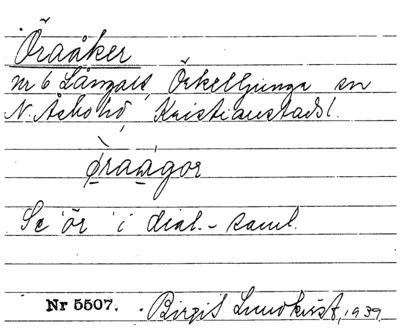 Öraåker
nr 6 Långalt, Örkelljunga sn
N. Åsbo hd, Kristianstads l.
Se 'ör' i dial.-saml.
Nr 5507. Birgit Lundkvist, 1939